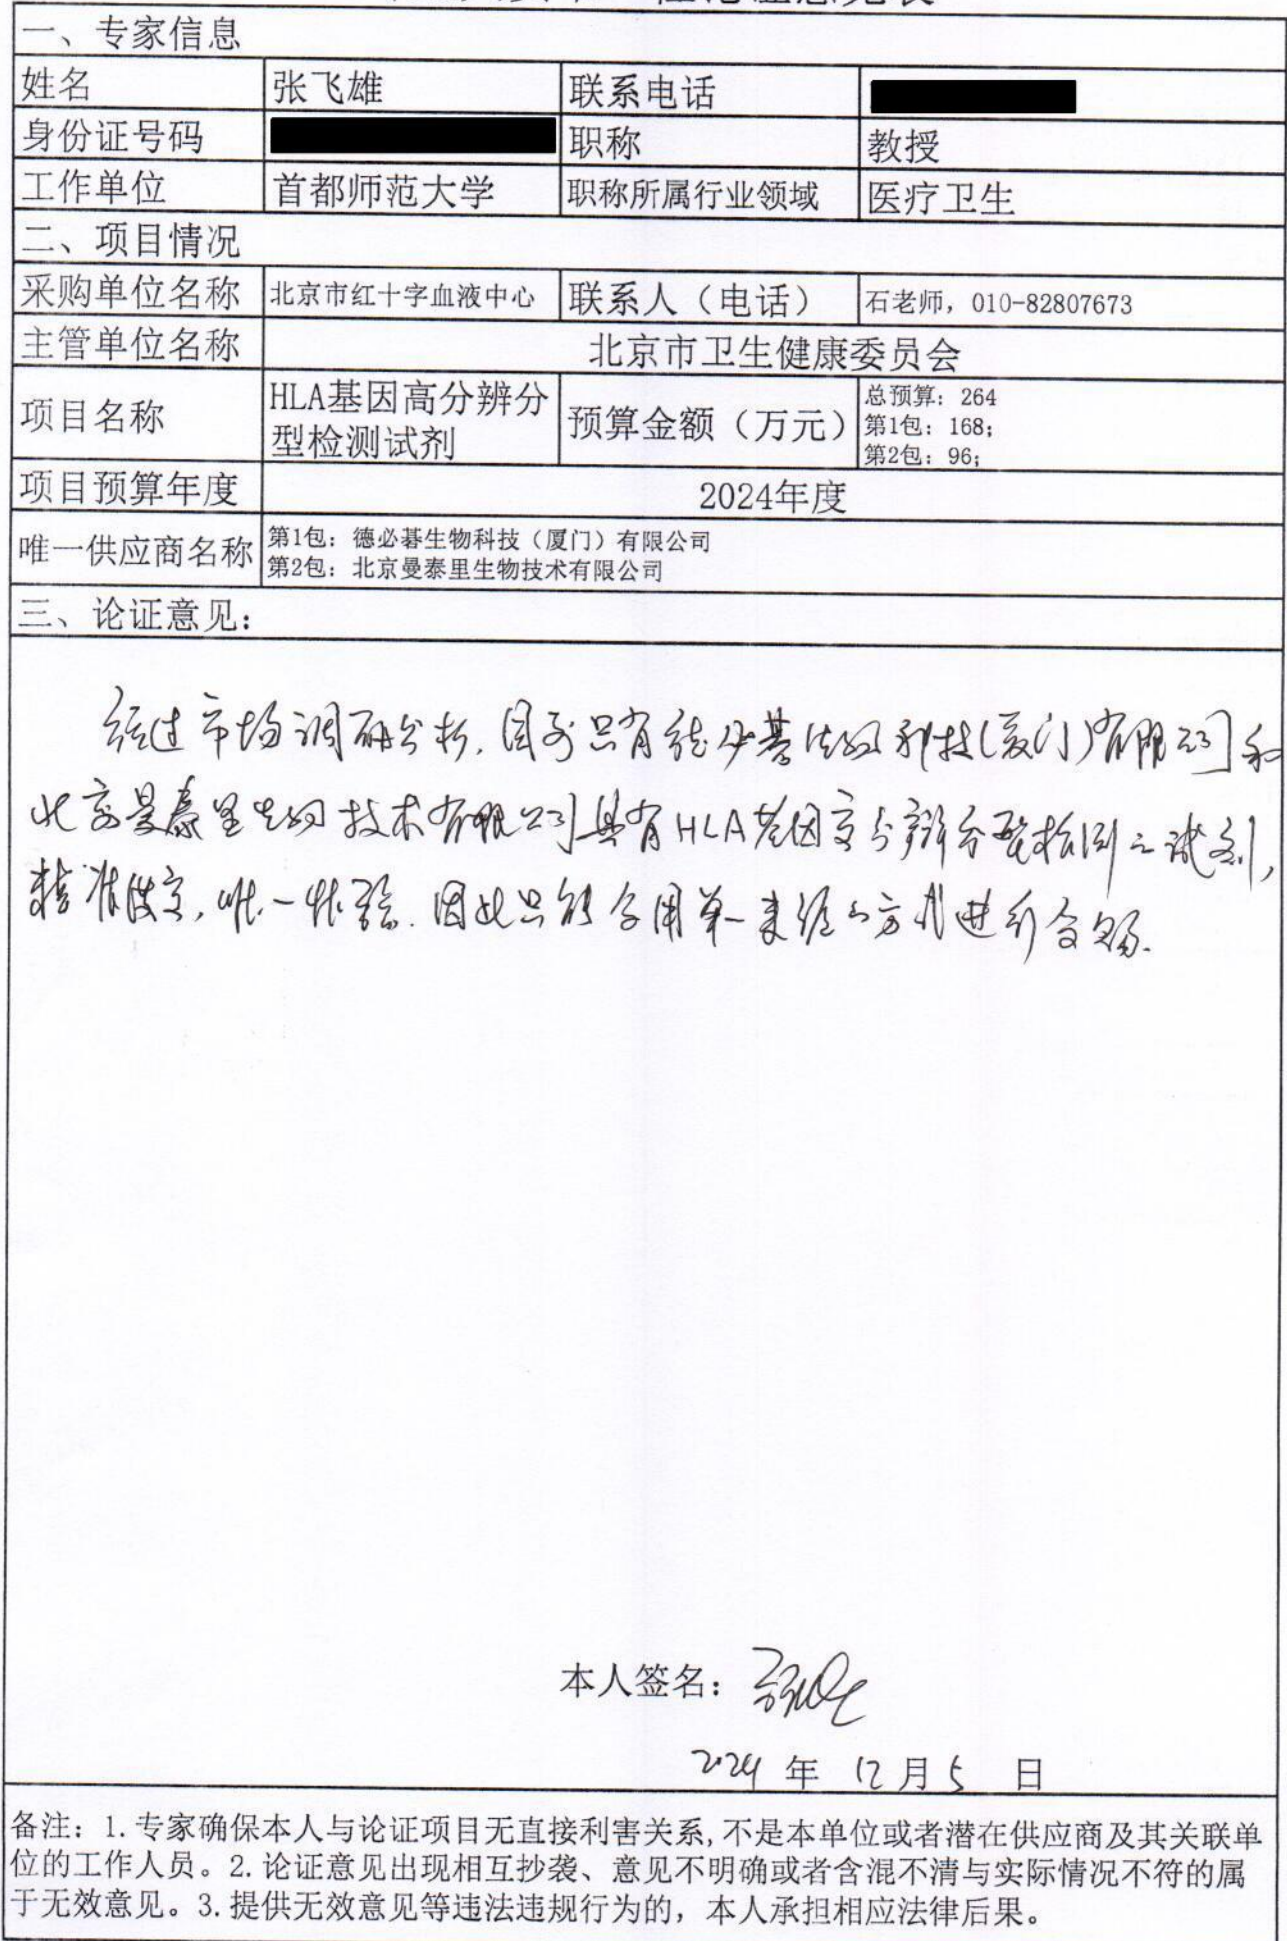 一、专家信息
姓名 张飞雄 联系电话
身份证号码 职称 教授
工作单位 首都师范大学 职称所属行业领域 医疗卫生
二、项目情况
采购单位名称 北京市红十字血液中心 联系人（电话） 石老师，010-82807673
主管单位名称 北京市卫生健康委员会
项目名称 HLA基因高分辨分型检测试剂 预算金额（万元） 总预算：264
第1包：168；
第2包：96；
项目预算年度 2024年度
唯一供应商名称 第1包：德必碁生物科技（厦门）有限公司
第2包：北京曼泰里生物技术有限公司
三、论证意见：
经过市场调研分析，目前只有德必碁生物科技(厦门)有限公司和
北京曼泰里生物技术有限公司具有HLA基因高分辨分型检测之试剂，
精准 唯一性 因此只能 用单一来源之方式进行
本人签名：
2024 年 12 月 5 日
备注：1.专家确保本人与论证项目无直接利害关系,不是本单位或者潜在供应商及其关联单
位的工作人员。2.论证意见出现相互抄袭、意见不明确或者含混不清与实际情况不符的属
于无效意见。3.提供无效意见等违法违规行为的，本人承担相应法律后果。